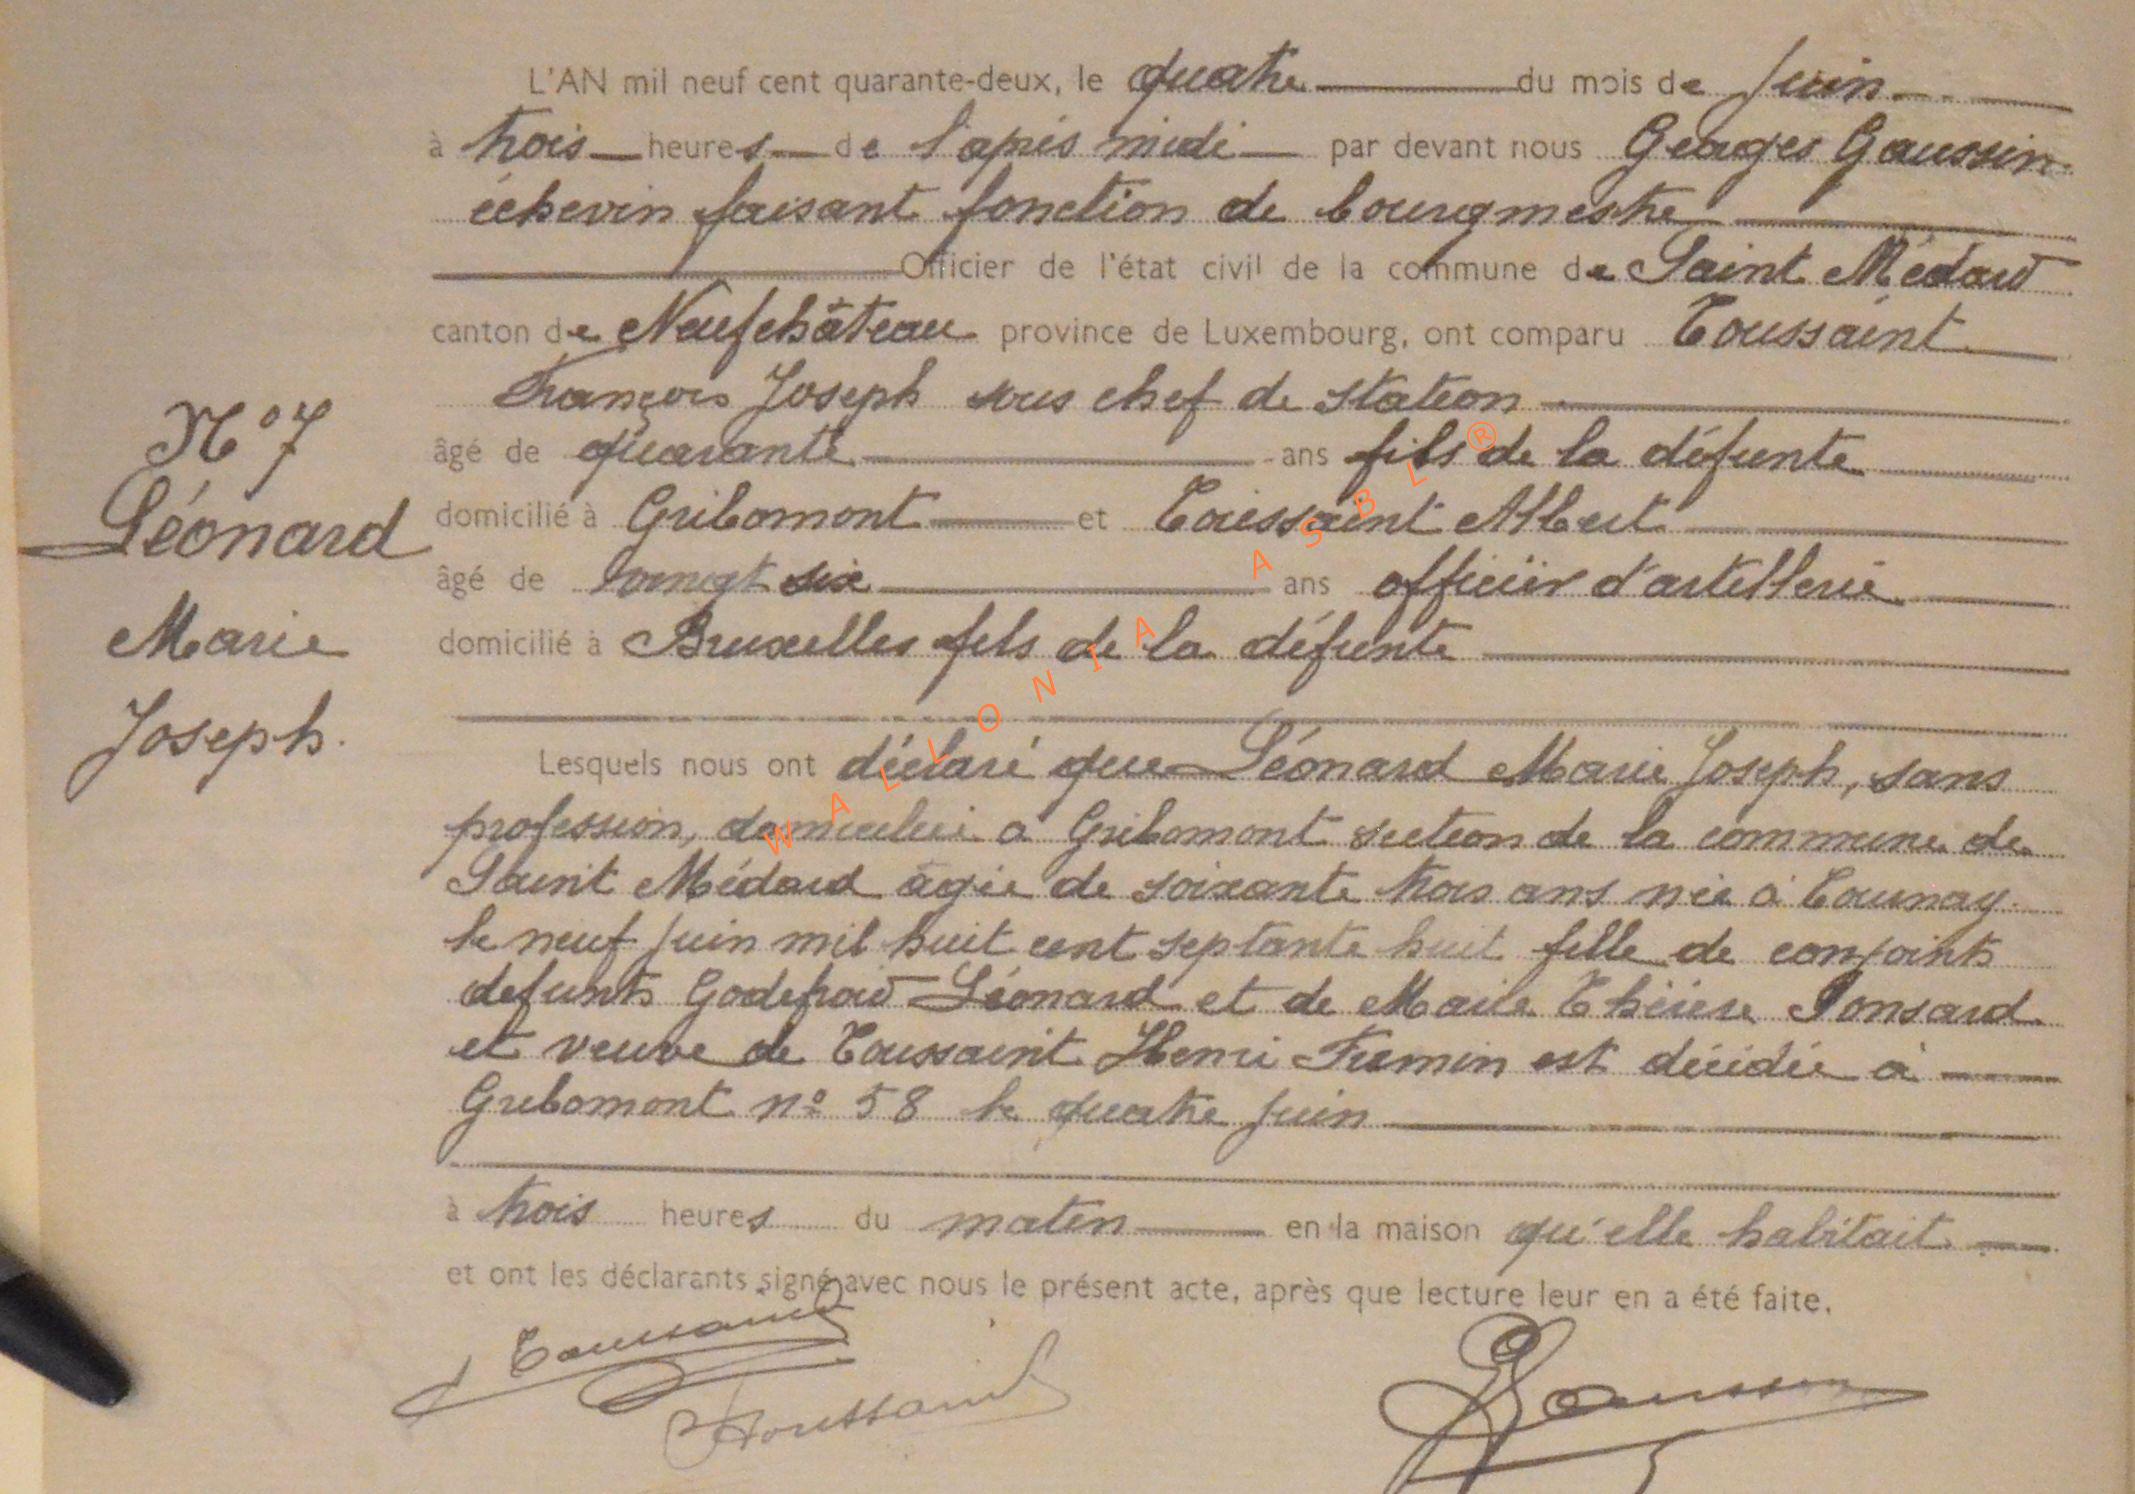 L'AN mil neuf cent quarante-deux, le quatre du mois de Juin
à trois heures de l'après midi par devant nous Georges Gaussin
échevin faisant fonction de bourgmestre
Officier de l'état civil de la commune de Saint Médard
canton de Neufchâteau province de Luxembourg, ont comparu Toussaint
François Joseph sous chef de station
âgé de quarante ans fils de la défunte
domicilié à Gribomont et Toussaint Albert
âgé de vingt six ans officier d'artillerie
domicilié à Bruxelles fils de la défunte
N° 7
Léonard
Marie
Joseph.
Lesquels nous ont déclaré que Léonard Marie Joseph, sans
profession, domiciliée à Gribomont section de la commune de
Saint Médard âgée de soixante trois ans née à Tournay
le neuf Juin mil huit cent septante huit fille de conjoints
défunts Godefroid Léonard et de Marie Thérèse Ponsard
et veuve de Toussaint Henri Firmin est décédée à
Gribomont n° 58 le quatre Juin
à trois heures du matin en la maison qu'elle habitait
et ont les déclarants signé avec nous le présent acte, après que lecture leur en a été faite.
Toussaint
Toussaint
GGaussin
WALLONIA ASBL ®